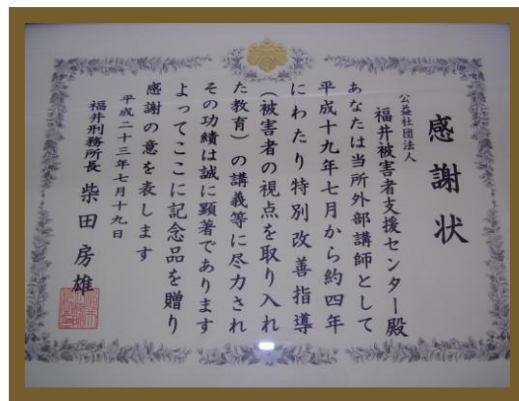 感謝状
公益社団法人
福井被害者支援センター殿
あなたは当所外部講師として
平成十九年七月から約四年
にわたり特別改善指導
(被害者の視点を取り入れ
た教育)の講義等に尽力され
その功績は誠に顕著であります
よってここに記念品を贈り
感謝の意を表します
平成二十三年七月十九日
福井刑務所長 柴田房雄